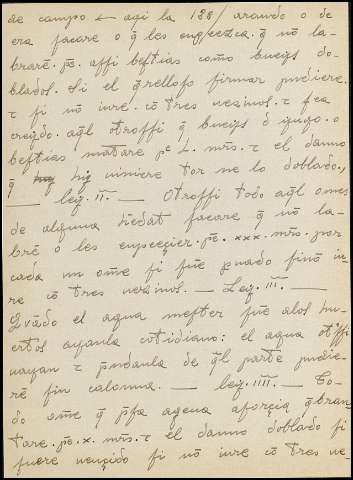 de campo o aqi la 128/ arando o de
era sacare o q̄ les enpeezca. q̄ nō la-
braré. pē. assi bestias como bueẏs do-
blados. Si el q̄relloso firmar pudiere.
τ si nō iure. cō tres uezinos. τ sea
creẏdo. aq̄l otrossi q̄ bueẏs d ẏugo. o
bestias matare pe L. mr̄s. τ el danno
q̄ hiz uiniere tor ne lo doblado.,
— leẏ. II. — Otrossi todo aq̄l omes
de alguna hedat sacare q̄ nō la-
bré o les enpeeçier. pē. xxx. mr̄s. por
cada un ome si fue puado sinō iu-
re cō tres uezinos. — Leẏ. III. —
Q̄uādo el agua mester fue alos hu-
ertos aẏanla cotidiano: el agua otssi
uaẏan τ p̄ndanla de q̄l parte pudie-
rē sin calonna. — leẏ. IIII. — To-
do ome q̄ p̄sa agena aforçia q̄bran-
tare. pē. x. mr̄s. τ el danno doblado si
fuere uençido si nō iure cō tres ue-